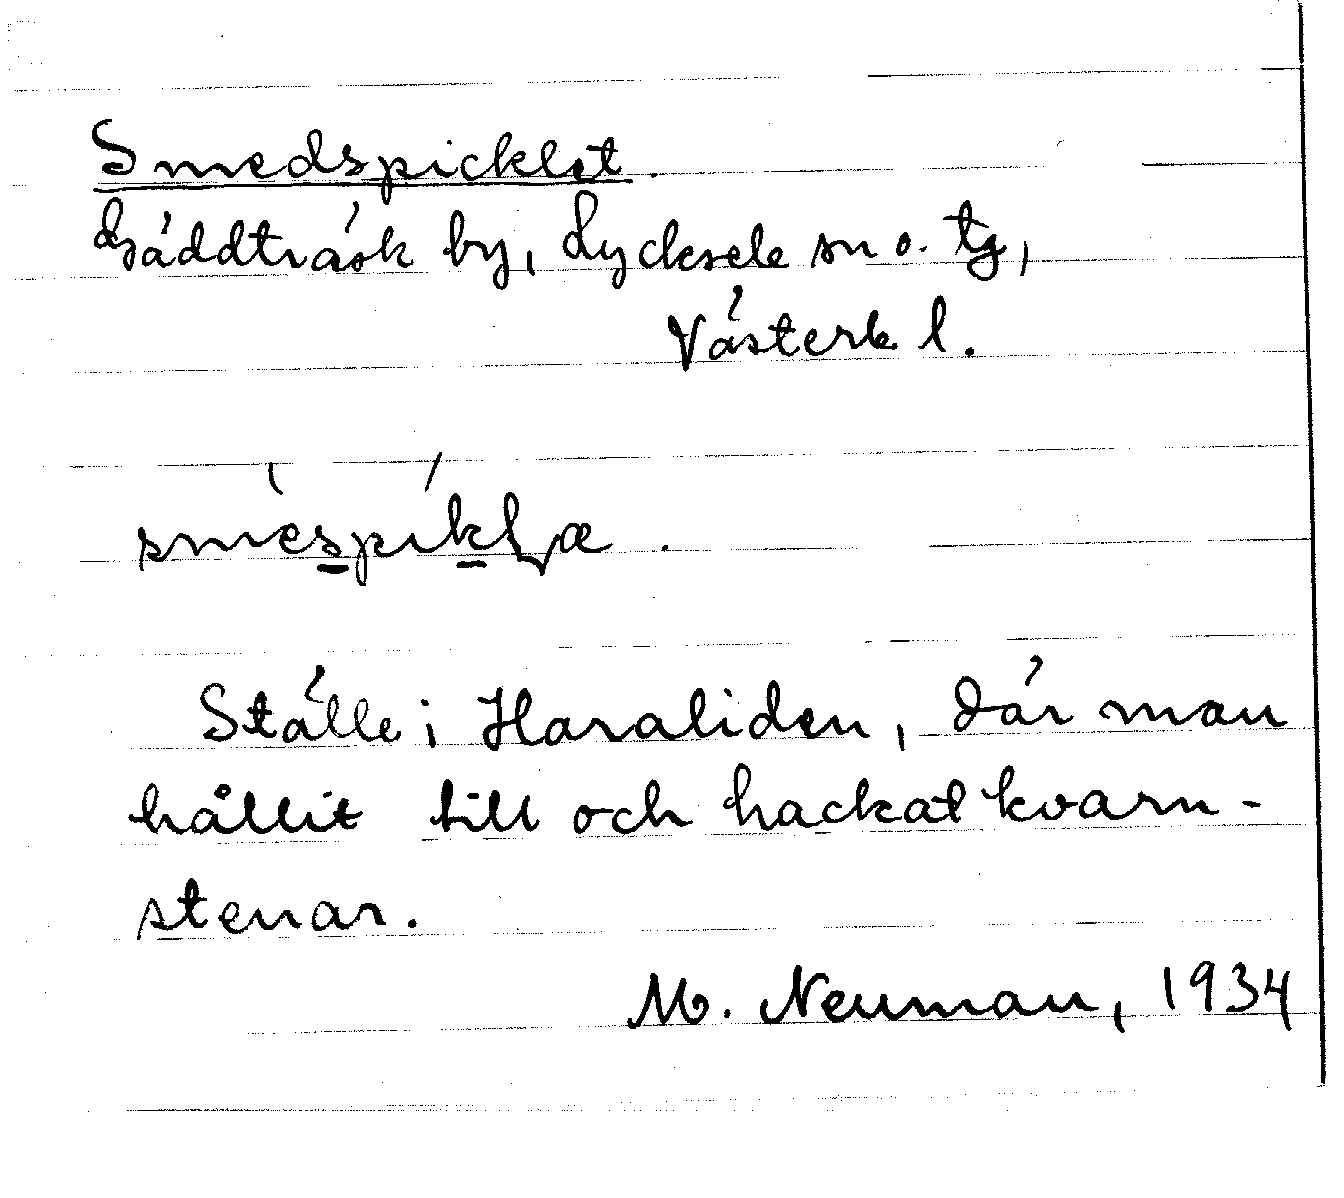 Smedspicklet.
Gäddträsk by, Lycksele sn o. tg,
Västerb l.
smèspíkḷæ.
Ställe i Haraliden, där man
hållit till och hackat kvarn-
stenar.
M. Neuman, 1934